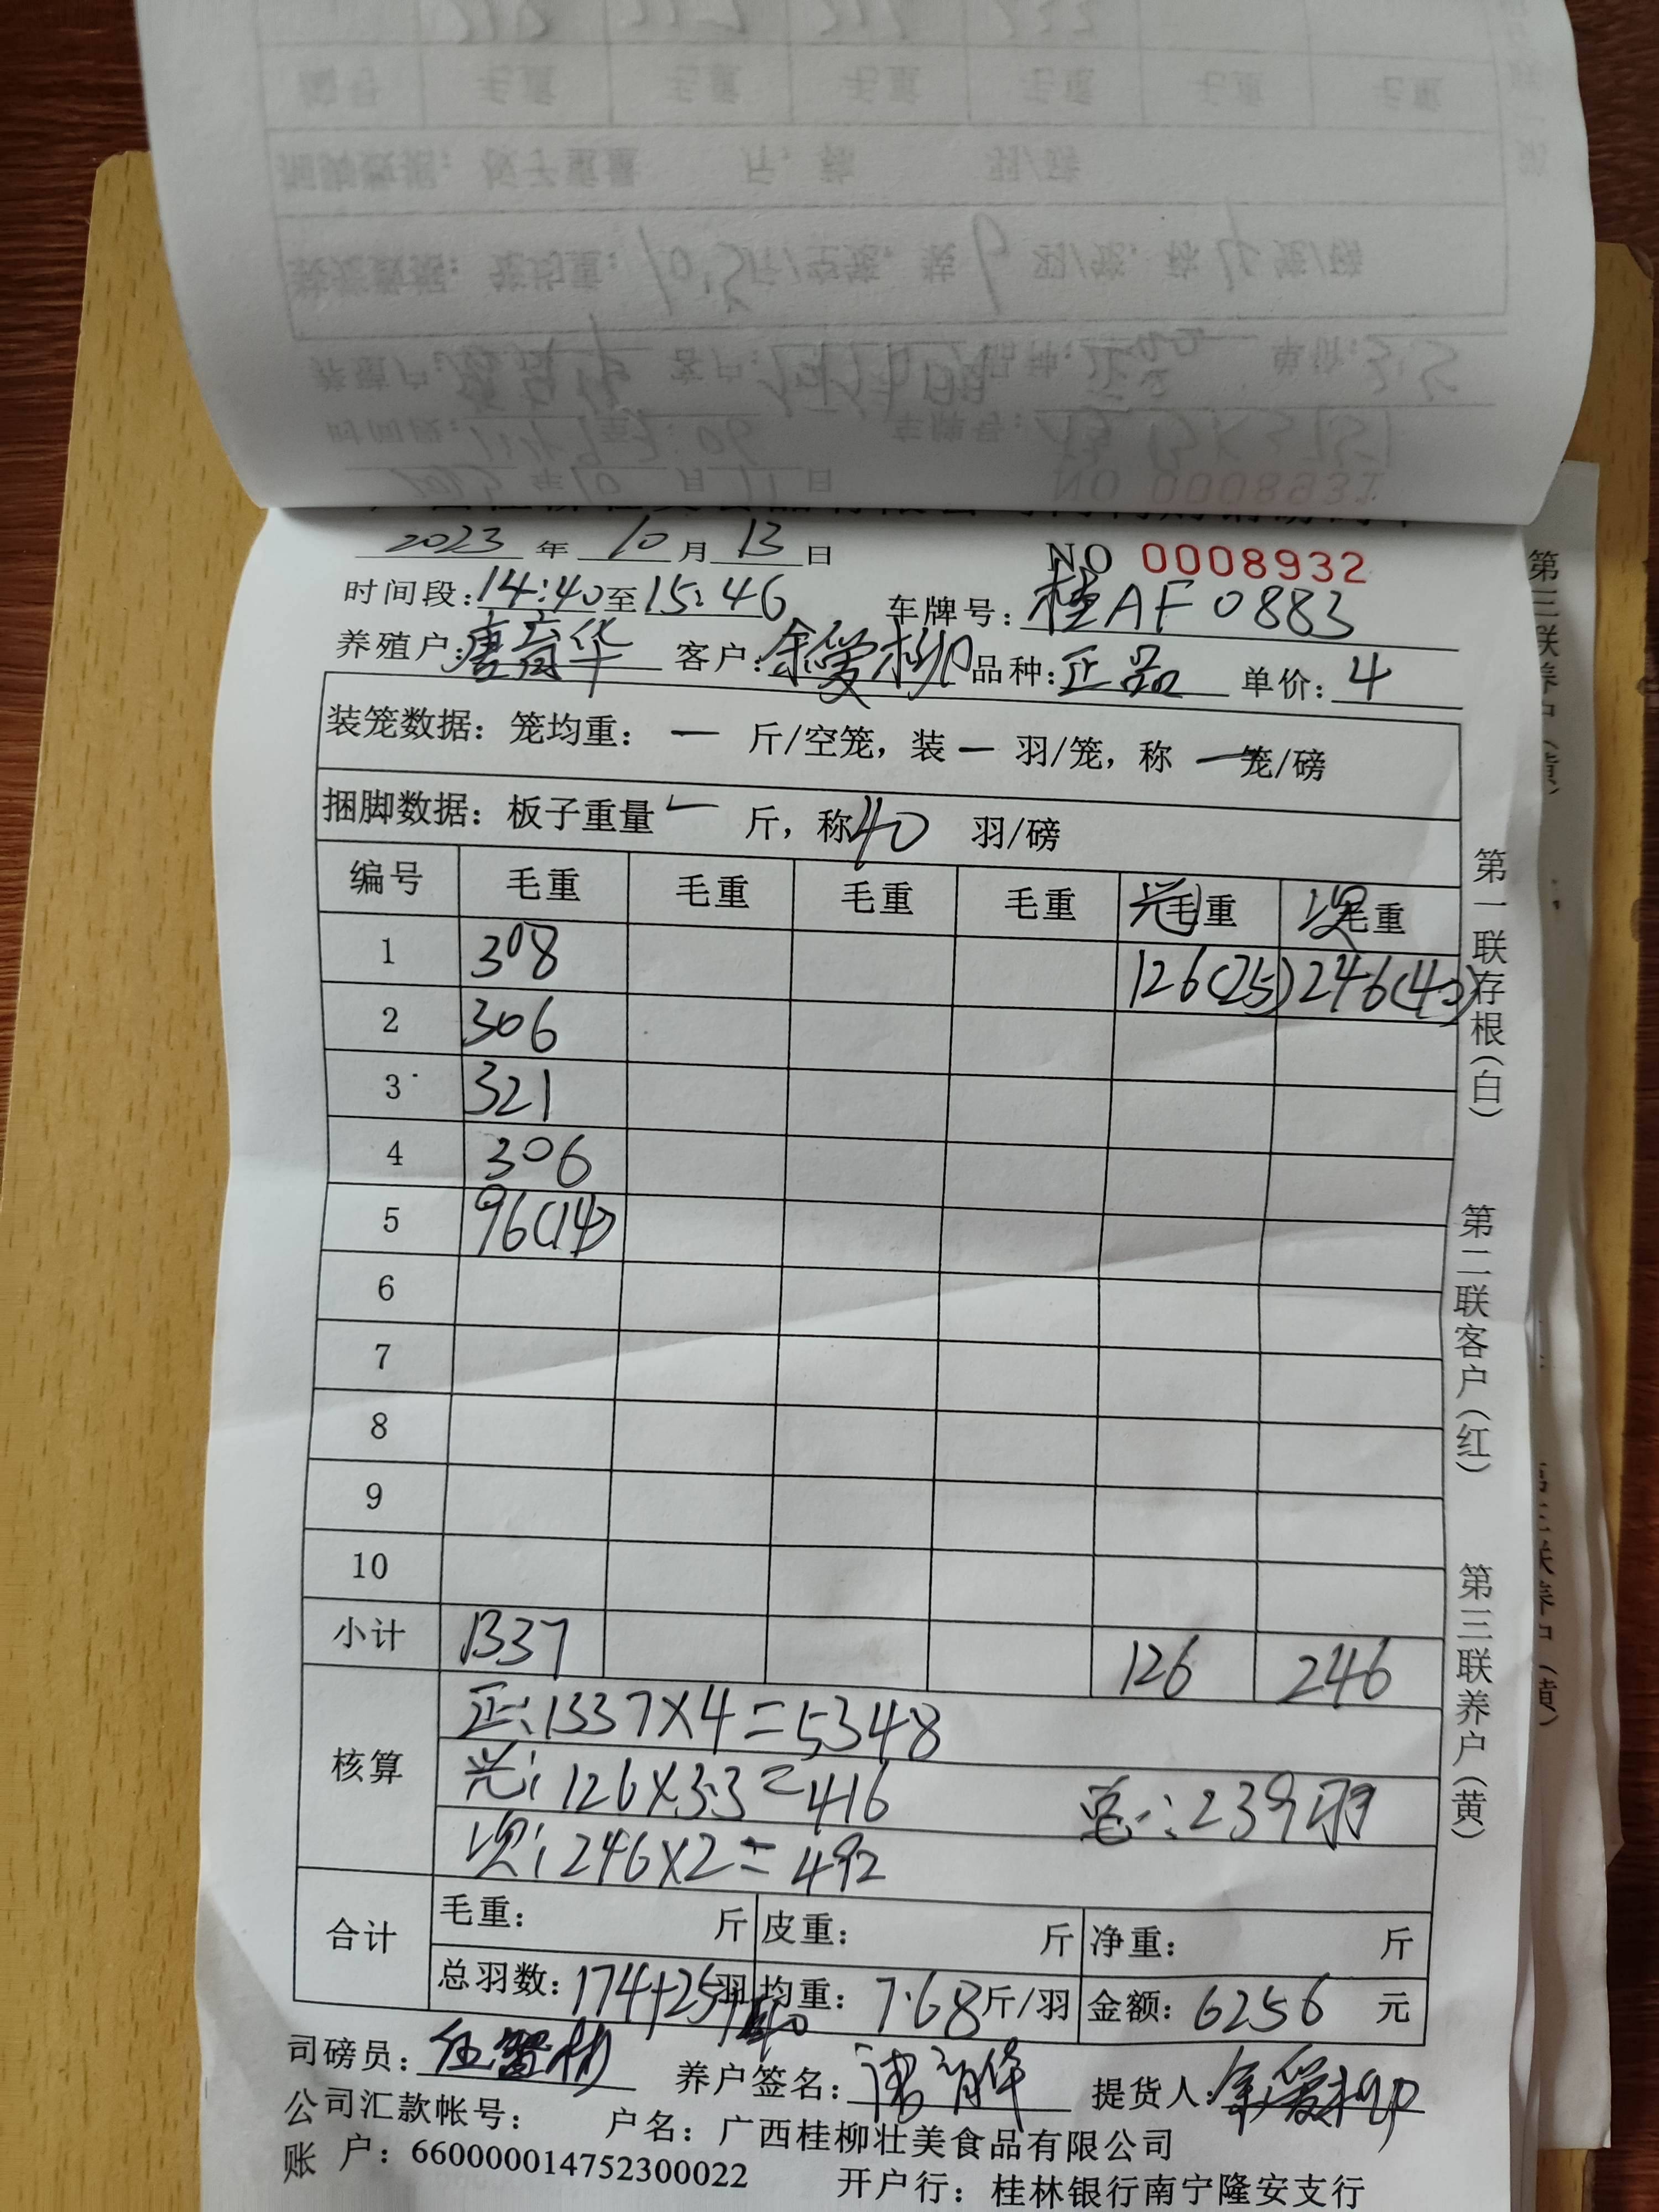 2023 年 10 月 13 日 NO 0008932
时间段:14:40至15:46 车牌号:桂AF0883
养殖户:唐育华 客户:余爱柳 品种:正品 单价:4
装笼数据:笼均重: 一 斤/空笼,装 一 羽/笼,称 一 笼/磅
捆脚数据:板子重量 一 斤,称40 羽/磅
编号 毛重 毛重 毛重 毛重 光毛重 次毛重
1 308 126(25) 246(40)
2 306
3 321
4 306
5 96(14)
6
7
8
9
10
小计 1337 126 246
核算 正:1337×4=5348
光:126×3.3=416 总:239羽
次:246×2=492
合计 毛重: 斤 皮重: 斤 净重: 斤
总羽数:174+25+40羽 均重:7.68斤/羽 金额:6256 元
司磅员: 养户签名:唐育华 提货人:余爱柳
公司汇款帐号: 户名:广西桂柳壮美食品有限公司
账 户:660000014752300022 开户行:桂林银行南宁隆安支行
第一联存根(白) 第二联客户(红) 第三联养户(黄)